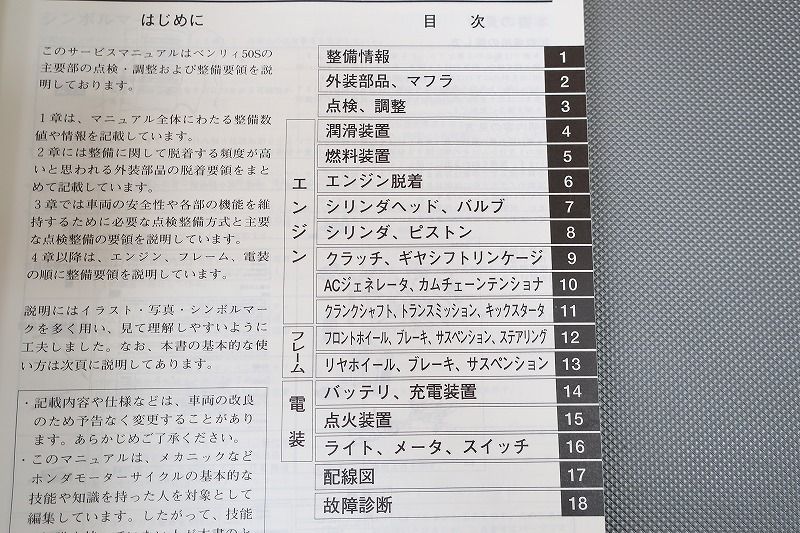 はじめに
このサービスマニュアルはベンリィ50Sの
主要部の点検・調整および整備要領を説
明しております。
1章は、マニュアル全体にわたる整備数
値や情報を記載しています。
2章には整備に関して脱着する頻度が高
いと思われる外装部品の脱着要領をまと
めて記載しています。
3章では車両の安全性や各部の機能を維
持するために必要な点検整備方式と主要
な点検整備の要領を説明しています。
4章以降は、エンジン、フレーム、電装
の順に整備要領を説明しています。
説明にはイラスト・写真・シンボルマー
クを多く用い、見て理解しやすいように
工夫しました。なお、本書の基本的な使
い方は次頁に説明してあります。
・記載内容や仕様などは、車両の改良
のため予告なく変更することがあり
ます。あらかじめご了承ください。
・このマニュアルは、メカニックなど
ホンダモーターサイクルの基本的な
技能や知識を持った人を対象として
編集しています。したがって、技能
目 次
整備情報 1
外装部品、マフラ 2
点検、調整 3
エンジン
潤滑装置 4
燃料装置 5
エンジン脱着 6
シリンダヘッド、バルブ 7
シリンダ、ピストン 8
クラッチ、ギヤシフトリンケージ 9
ACジェネレータ、カムチェーンテンショナ 10
クランクシャフト、トランスミッション、キックスタータ 11
フレーム
フロントホイール、ブレーキ、サスペンション、ステアリング 12
リヤホイール、ブレーキ、サスペンション 13
電装
バッテリ、充電装置 14
点火装置 15
ライト、メータ、スイッチ 16
配線図 17
故障診断 18